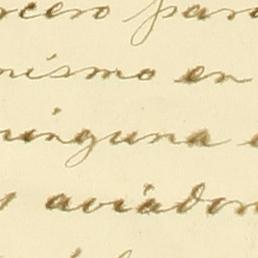 rcero para
nismo en
ninguna
aviador